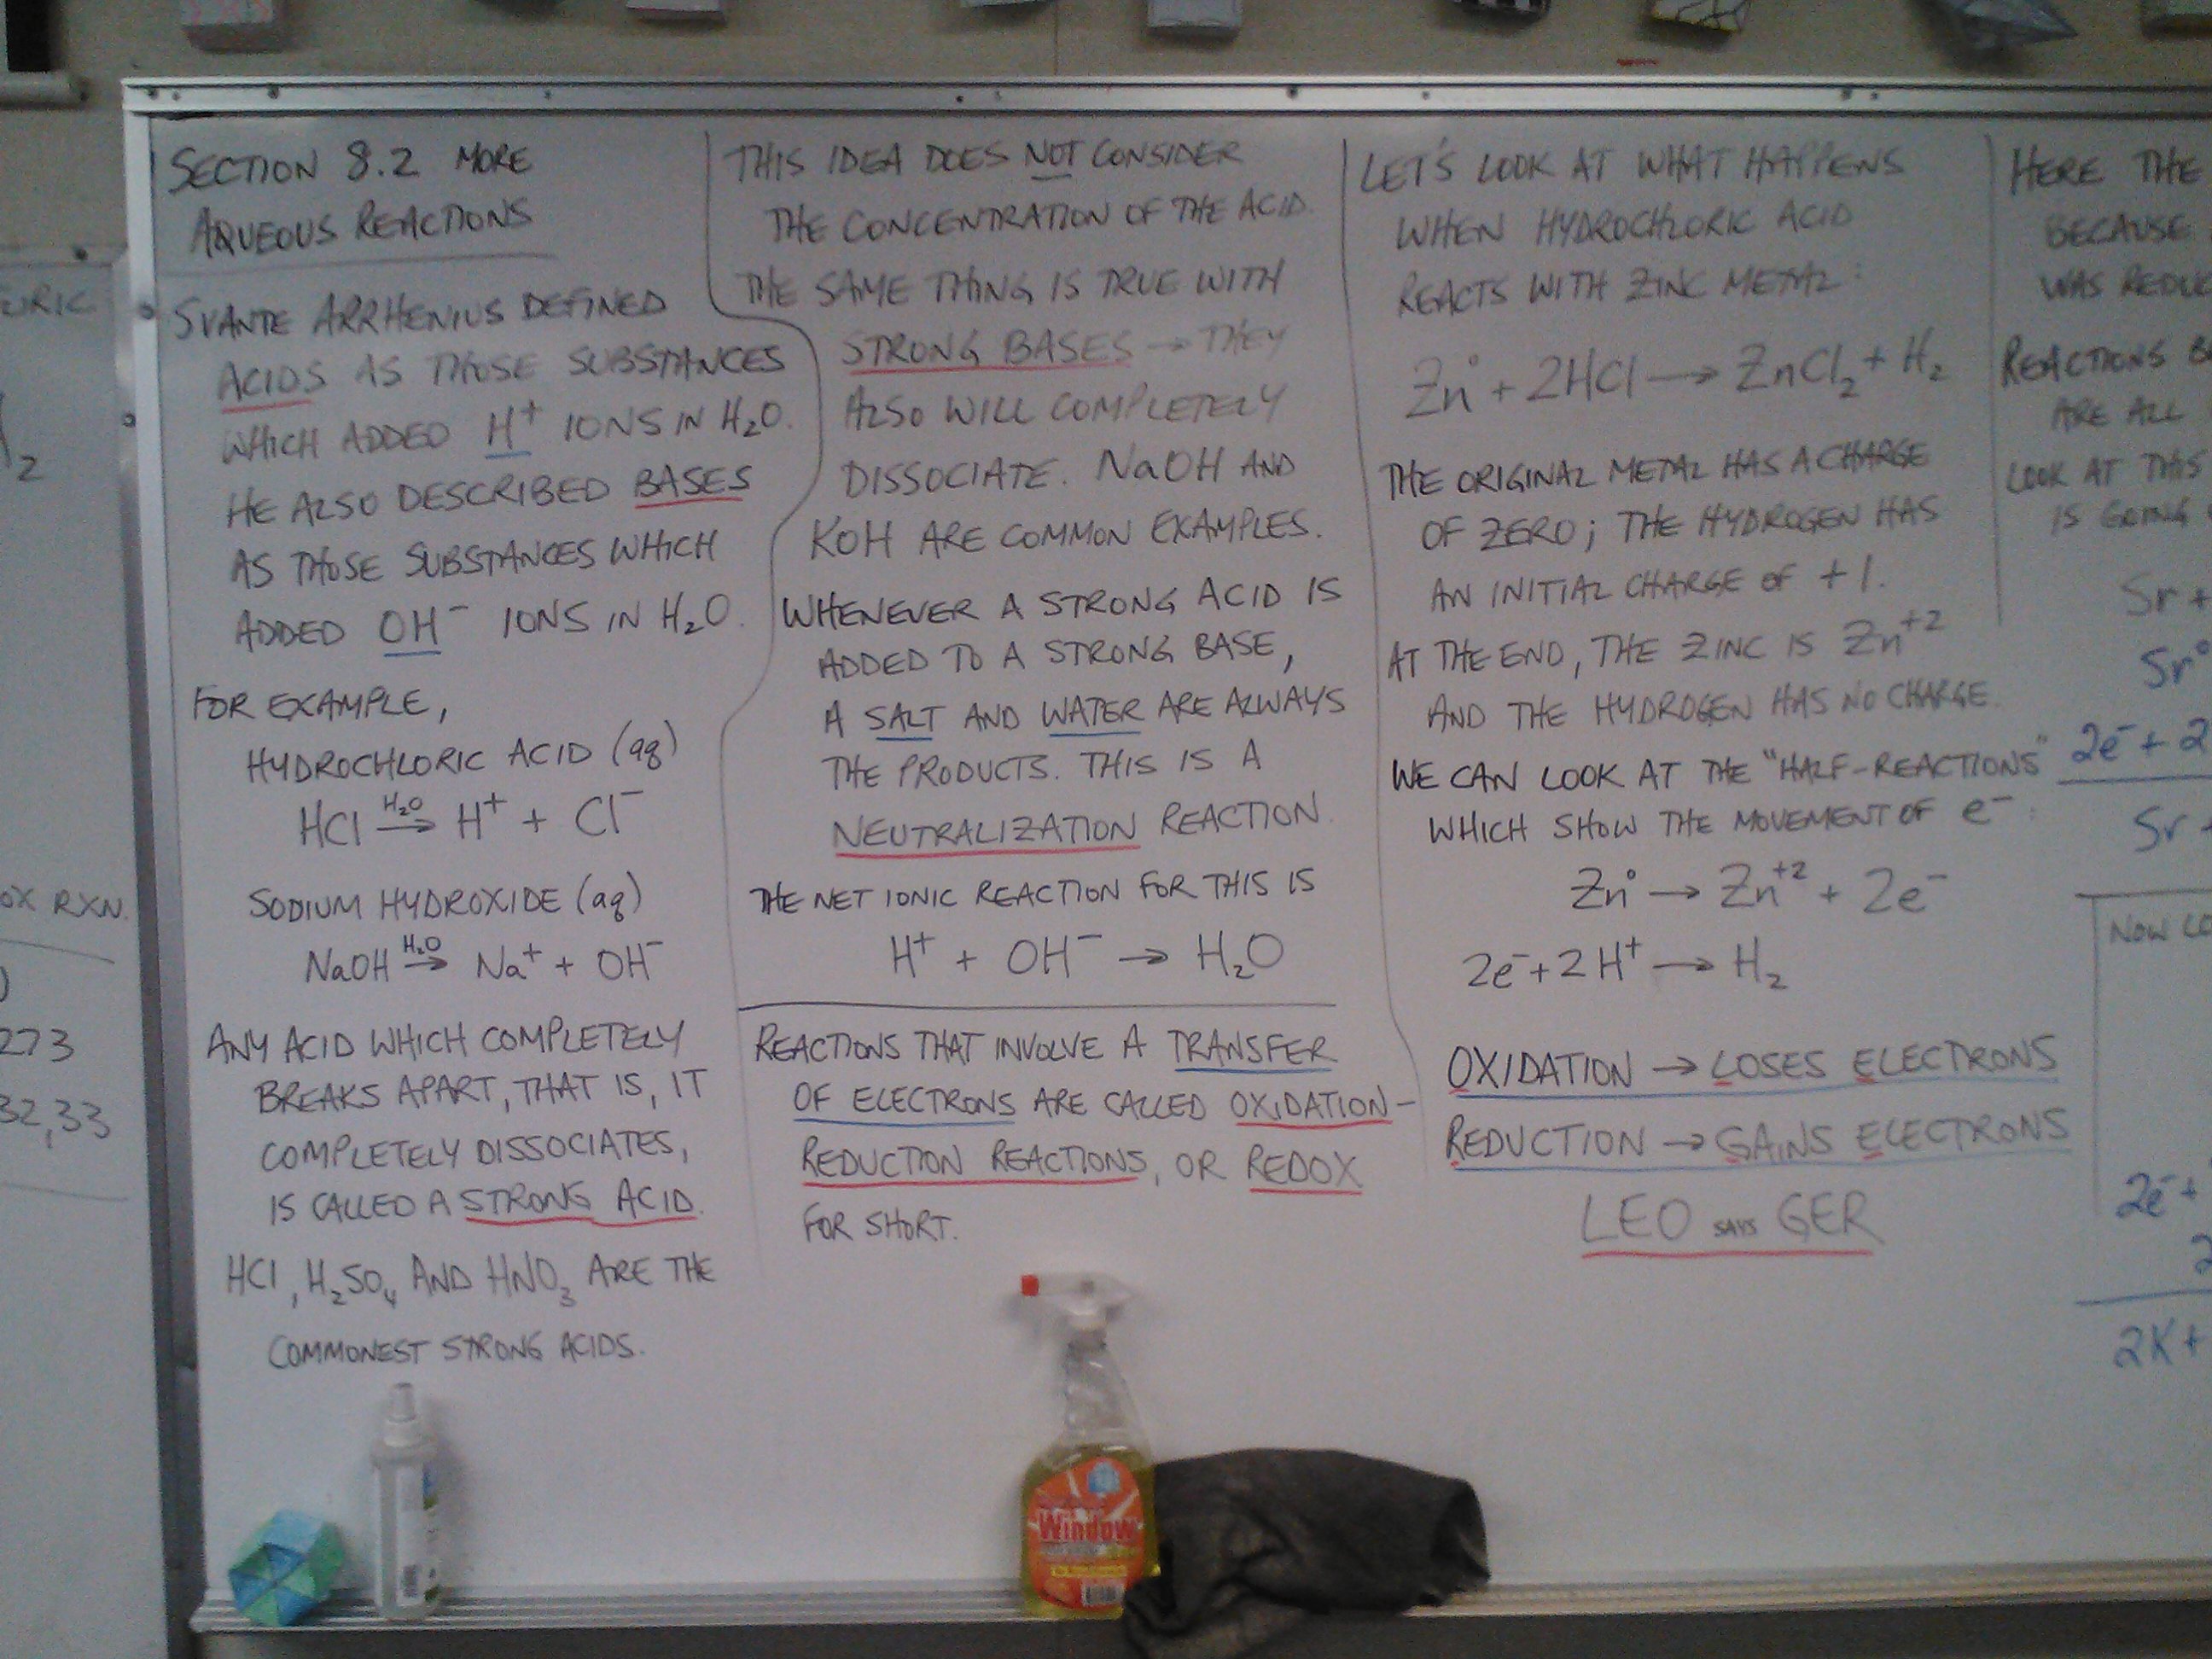 SECTION 8.2 MORE
AQUEOUS REACTIONS
SVANTE ARRHENIUS DEFINED
ACIDS AS THOSE SUBSTANCES
WHICH ADDED H⁺ IONS IN H₂O.
HE ALSO DESCRIBED BASES
AS THOSE SUBSTANCES WHICH
ADDED OH⁻ IONS IN H₂O.
FOR EXAMPLE,
HYDROCHLORIC ACID (aq)
HCl H₂O→ H⁺ + Cl⁻
SODIUM HYDROXIDE (aq)
NaOH H₂O→ Na⁺ + OH⁻
ANY ACID WHICH COMPLETELY
BREAKS APART, THAT IS, IT
COMPLETELY DISSOCIATES,
IS CALLED A STRONG ACID.
HCl, H₂SO₄ AND HNO₃ ARE THE
COMMONEST STRONG ACIDS.
THIS IDEA DOES NOT CONSIDER
THE CONCENTRATION OF THE ACID.
THE SAME THING IS TRUE WITH
STRONG BASES → THEY
ALSO WILL COMPLETELY
DISSOCIATE. NaOH AND
KOH ARE COMMON EXAMPLES.
WHENEVER A STRONG ACID IS
ADDED TO A STRONG BASE,
A SALT AND WATER ARE ALWAYS
THE PRODUCTS. THIS IS A
NEUTRALIZATION REACTION.
THE NET IONIC REACTION FOR THIS IS
H⁺ + OH⁻ → H₂O
REACTIONS THAT INVOLVE A TRANSFER
OF ELECTRONS ARE CALLED OXIDATION-
REDUCTION REACTIONS, OR REDOX
FOR SHORT.
LET'S LOOK AT WHAT HAPPENS
WHEN HYDROCHLORIC ACID
REACTS WITH ZINC METAL:
Zn° + 2HCl → ZnCl₂ + H₂
THE ORIGINAL METAL HAS A CHARGE
OF ZERO; THE HYDROGEN HAS
AN INITIAL CHARGE OF +1.
AT THE END, THE ZINC IS Zn⁺²
AND THE HYDROGEN HAS NO CHARGE.
WE CAN LOOK AT THE "HALF-REACTIONS"
WHICH SHOW THE MOVEMENT OF e⁻:
Zn° → Zn⁺² + 2e⁻
2e⁻ + 2H⁺ → H₂
OXIDATION → LOSES ELECTRONS
REDUCTION → GAINS ELECTRONS
LEO SAYS GER
HERE THE
BECAUSE
WAS REDUC
REACTIONS B
ARE ALL
LOOK AT THIS
IS GOING
Sr +
Sr°
2e⁻ + 2
Sr +
NOW LO
2e⁻ +
2
2K +
URIC
2
OX RXN.
273
32,33
Window